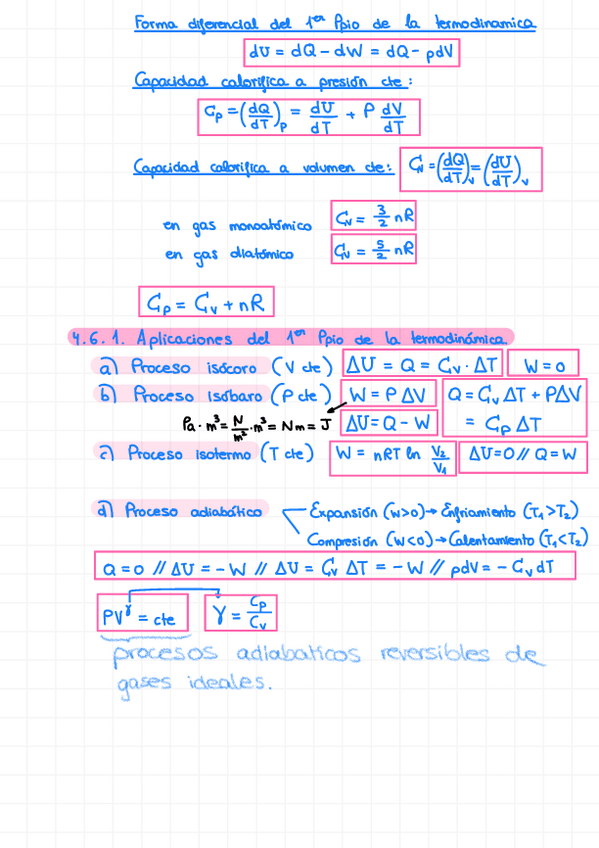 Forma diferencial del 1er Ppio de la termodinamica
dU = dQ - dW = dQ - pdV
Capacidad calorifica a presión cte:
Cp = (dQ/dT)p = dU/dT + P dV/dT
Capacidad calorifica a volumen cte: Cv = (dQ/dT)v = (dU/dT)v
en gas monoatómico Cv = 3/2 nR
en gas diatómico Cv = 5/2 nR
Cp = Cv + nR
4.6.1. Aplicaciones del 1er Ppio de la termodinámica
a) Proceso isócoro (V cte) ΔU = Q = Cv · ΔT W = 0
b) Proceso isóbaro (P cte) W = P ΔV Q = Cv ΔT + PΔV
Pa · m³ = N/m² · m³ = Nm = J ΔU = Q - W = Cp ΔT
c) Proceso isotermo (T cte) W = nRT ln V2/V1 ΔU = 0 // Q = W
d) Proceso adiabático Expansión (W>0) → Enfriamiento (T1 > T2)
Compresión (W<0) → Calentamiento (T1 < T2)
Q = 0 // ΔU = -W // ΔU = Cv ΔT = -W // pdV = -Cv dT
PV^γ = cte γ = Cp/Cv
procesos adiabaticos reversibles de
gases ideales.